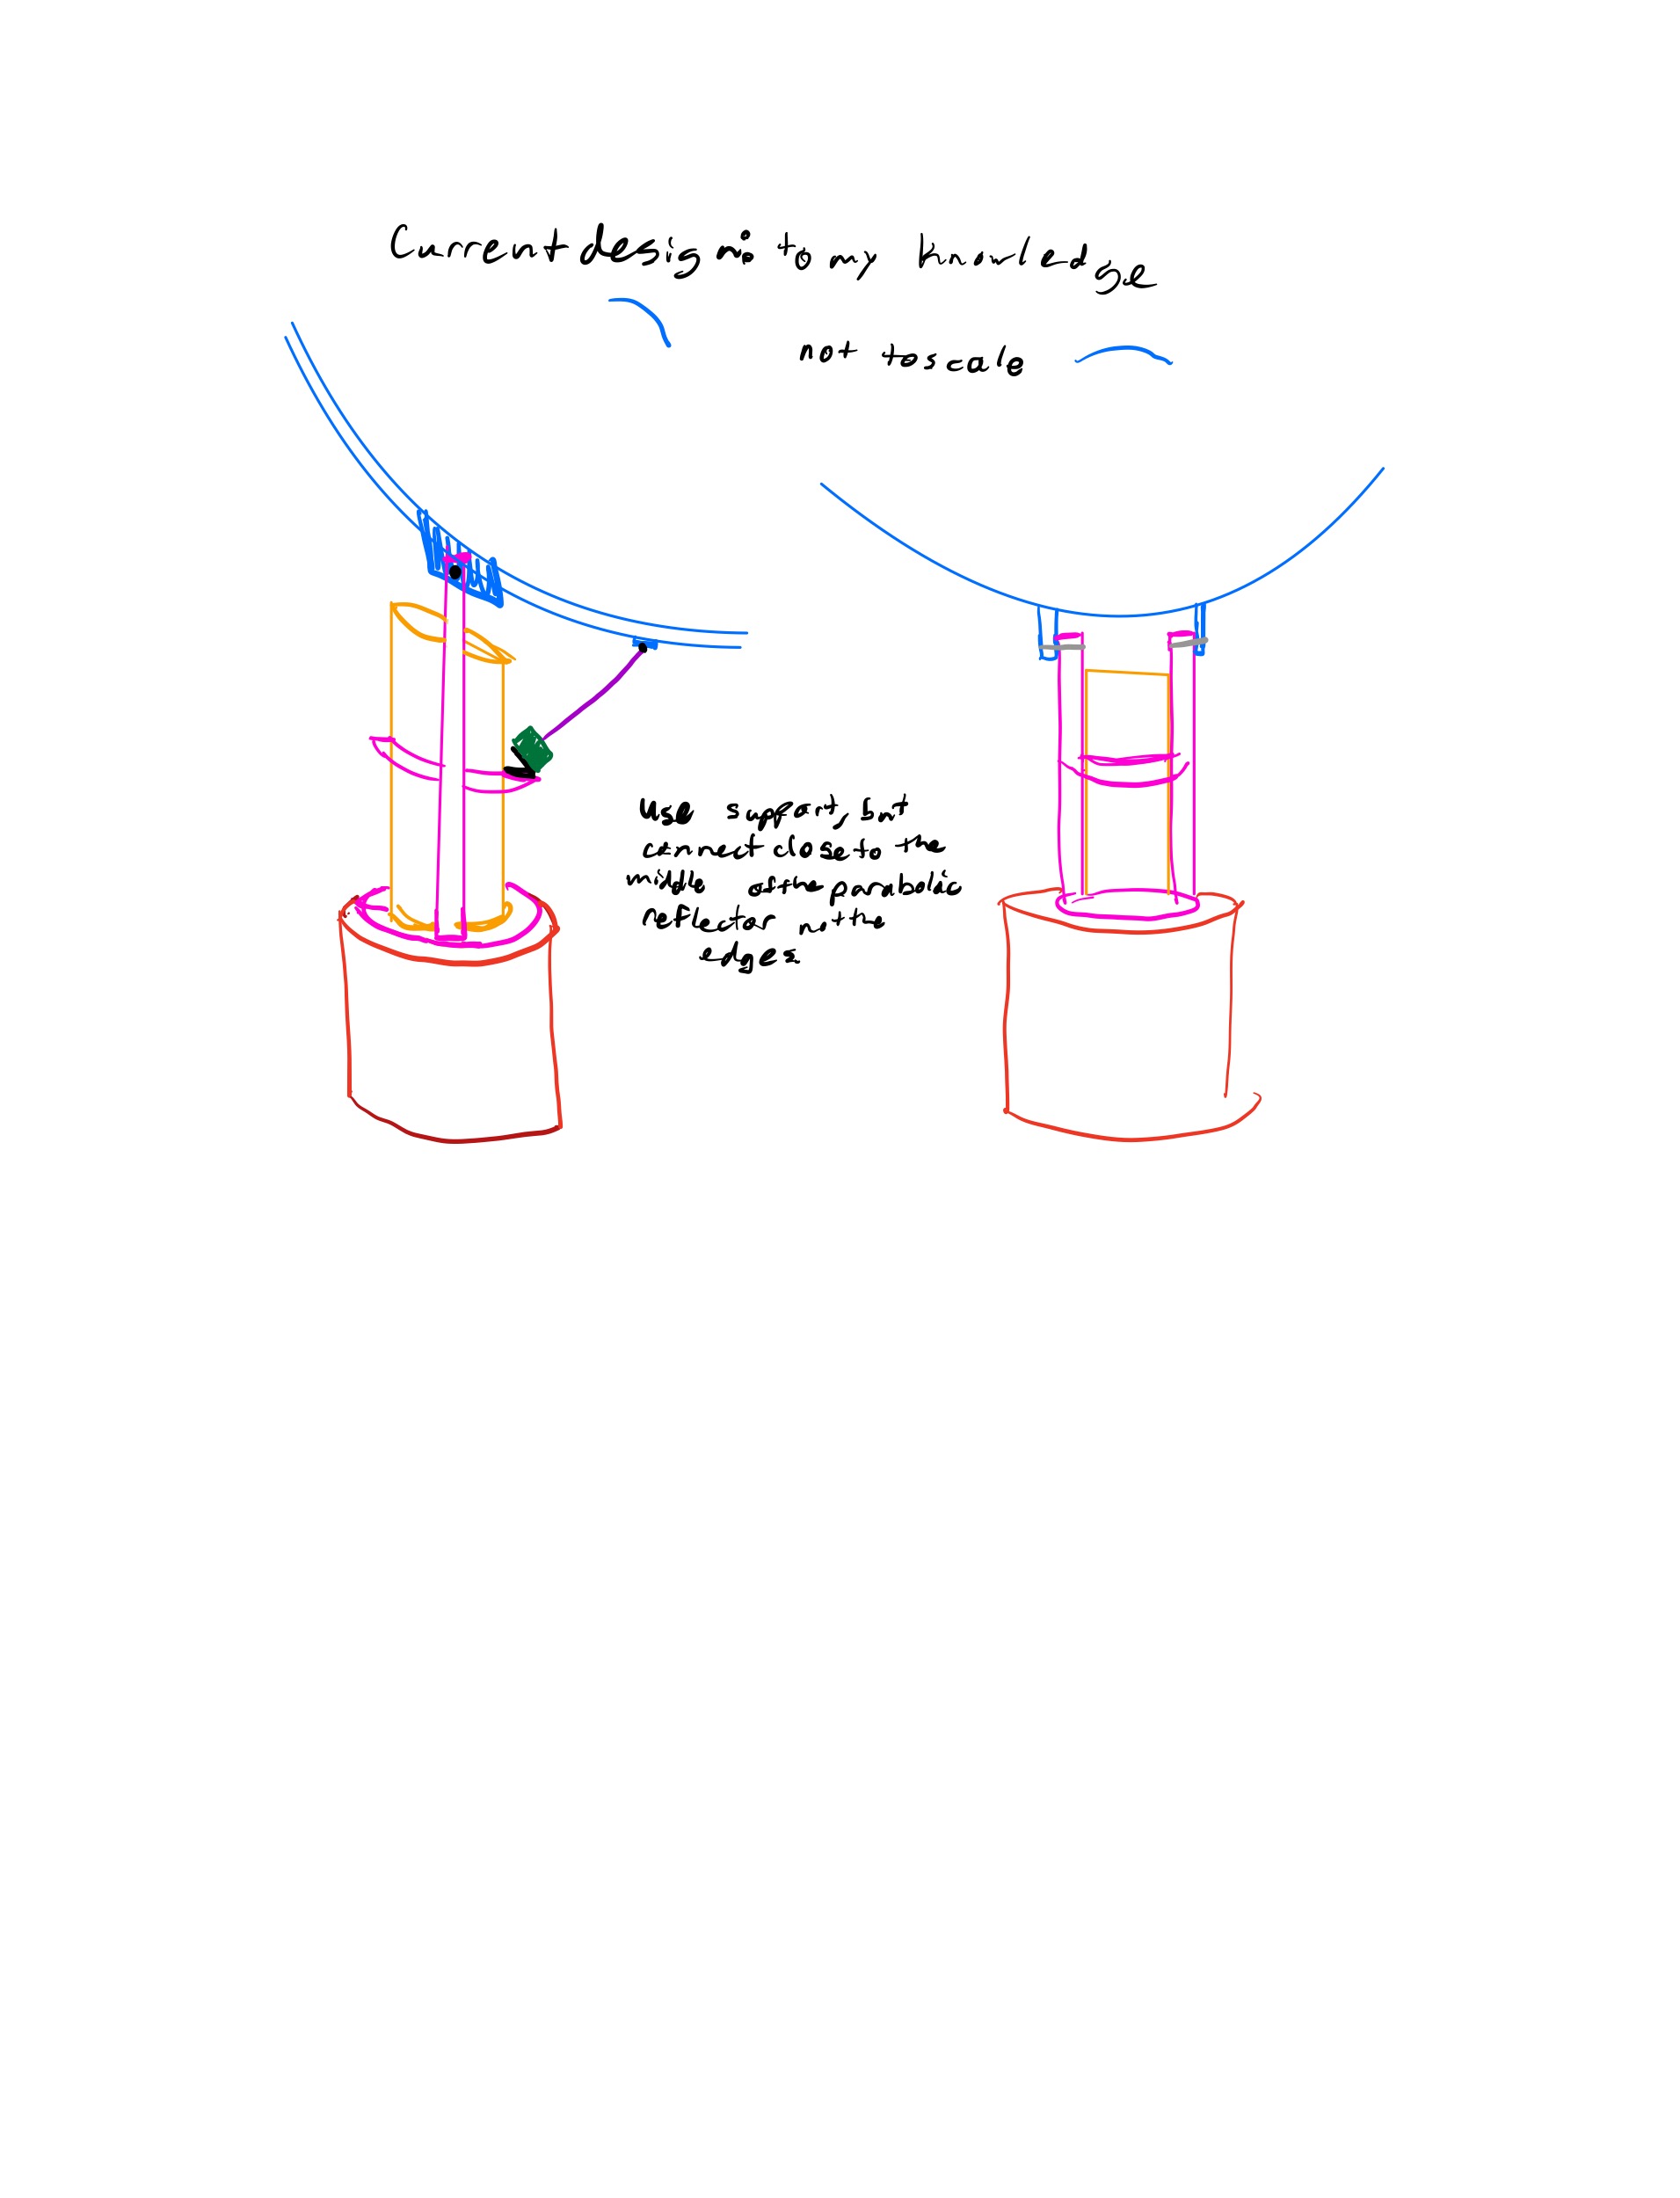 Current design to my knowledge
not to scale
use support, but
connect close to the
middle of the parabolic
reflector not the
edges